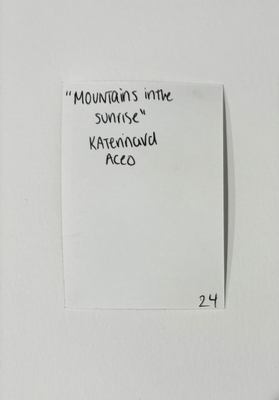 "MOUNTAins in the
sunrise"
KATerinavd
ACEO
24